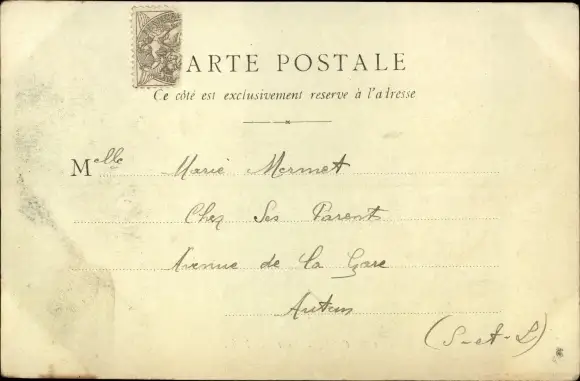 CARTE POSTALE
Ce côté est exclusivement reserve à l'adresse
Melle Marie Mermet
Chez Ses Parents
Avenue de la Gare
Autun
(S-et-L)